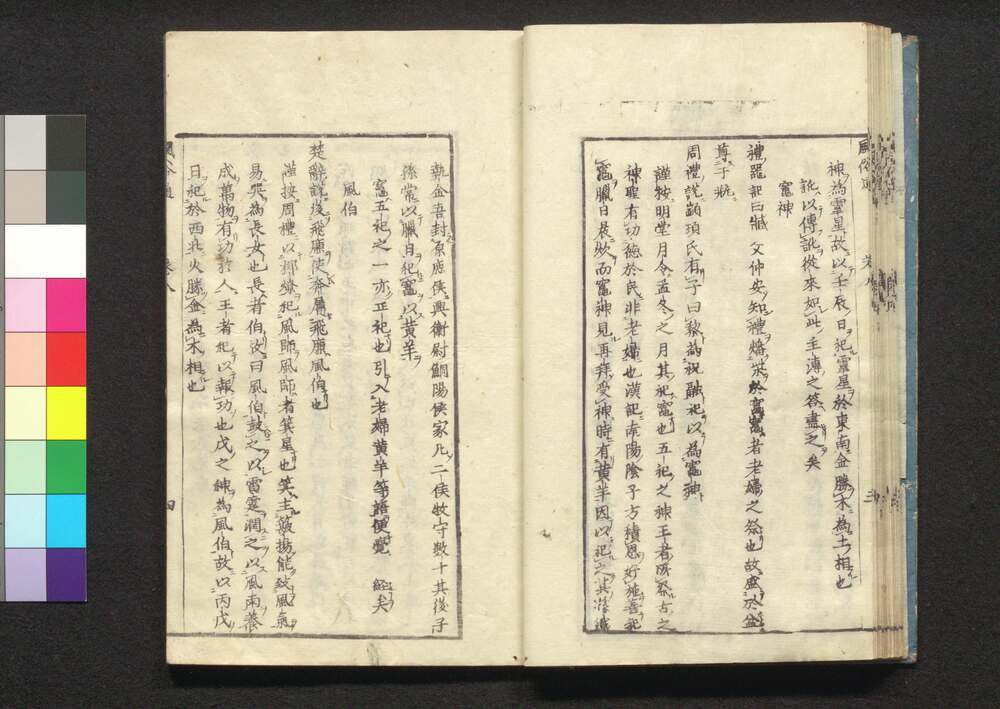 神為靈星故以壬辰日祀靈星於東南金勝木為土相也
訛以傳訛從來如此主溥之答盡之矣
竈神
禮器記曰臧文仲安知禮燔柴於竈竈者老婦之祭也故盛於盆
尊于瓶
周禮說顓頊氏有子曰黎為祝融祀以為竈神
謹按明堂月令孟冬之月其祀竈也五祀之神王者所祭古之
神聖有功德於民非老婦也漢記南陽陰子方積恩好施喜祀
竈臘日晨炊而竈神見再拜受神時有黃羊因以祀之其孫識
執金吾封原鹿侯興衛尉鮦陽侯家凡二侯牧守數十其後子
孫常以臘日祀竈以黃羊
竈五祀之一亦正祀也引入老婦黃羊等語便覺 經矣
風伯
楚辭說後飛廉使奔屬飛廉風伯也
謹按周禮以槱燎祀風師風師者箕星也箕主簸揚能致風氣
易巽為長女也長者伯故曰風伯鼓之以雷霆潤之以風雨養
成萬物有功於人王者祀以報功也戌之神為風伯故以丙戌
日祀於西北火勝金為木相也
風俗通
四